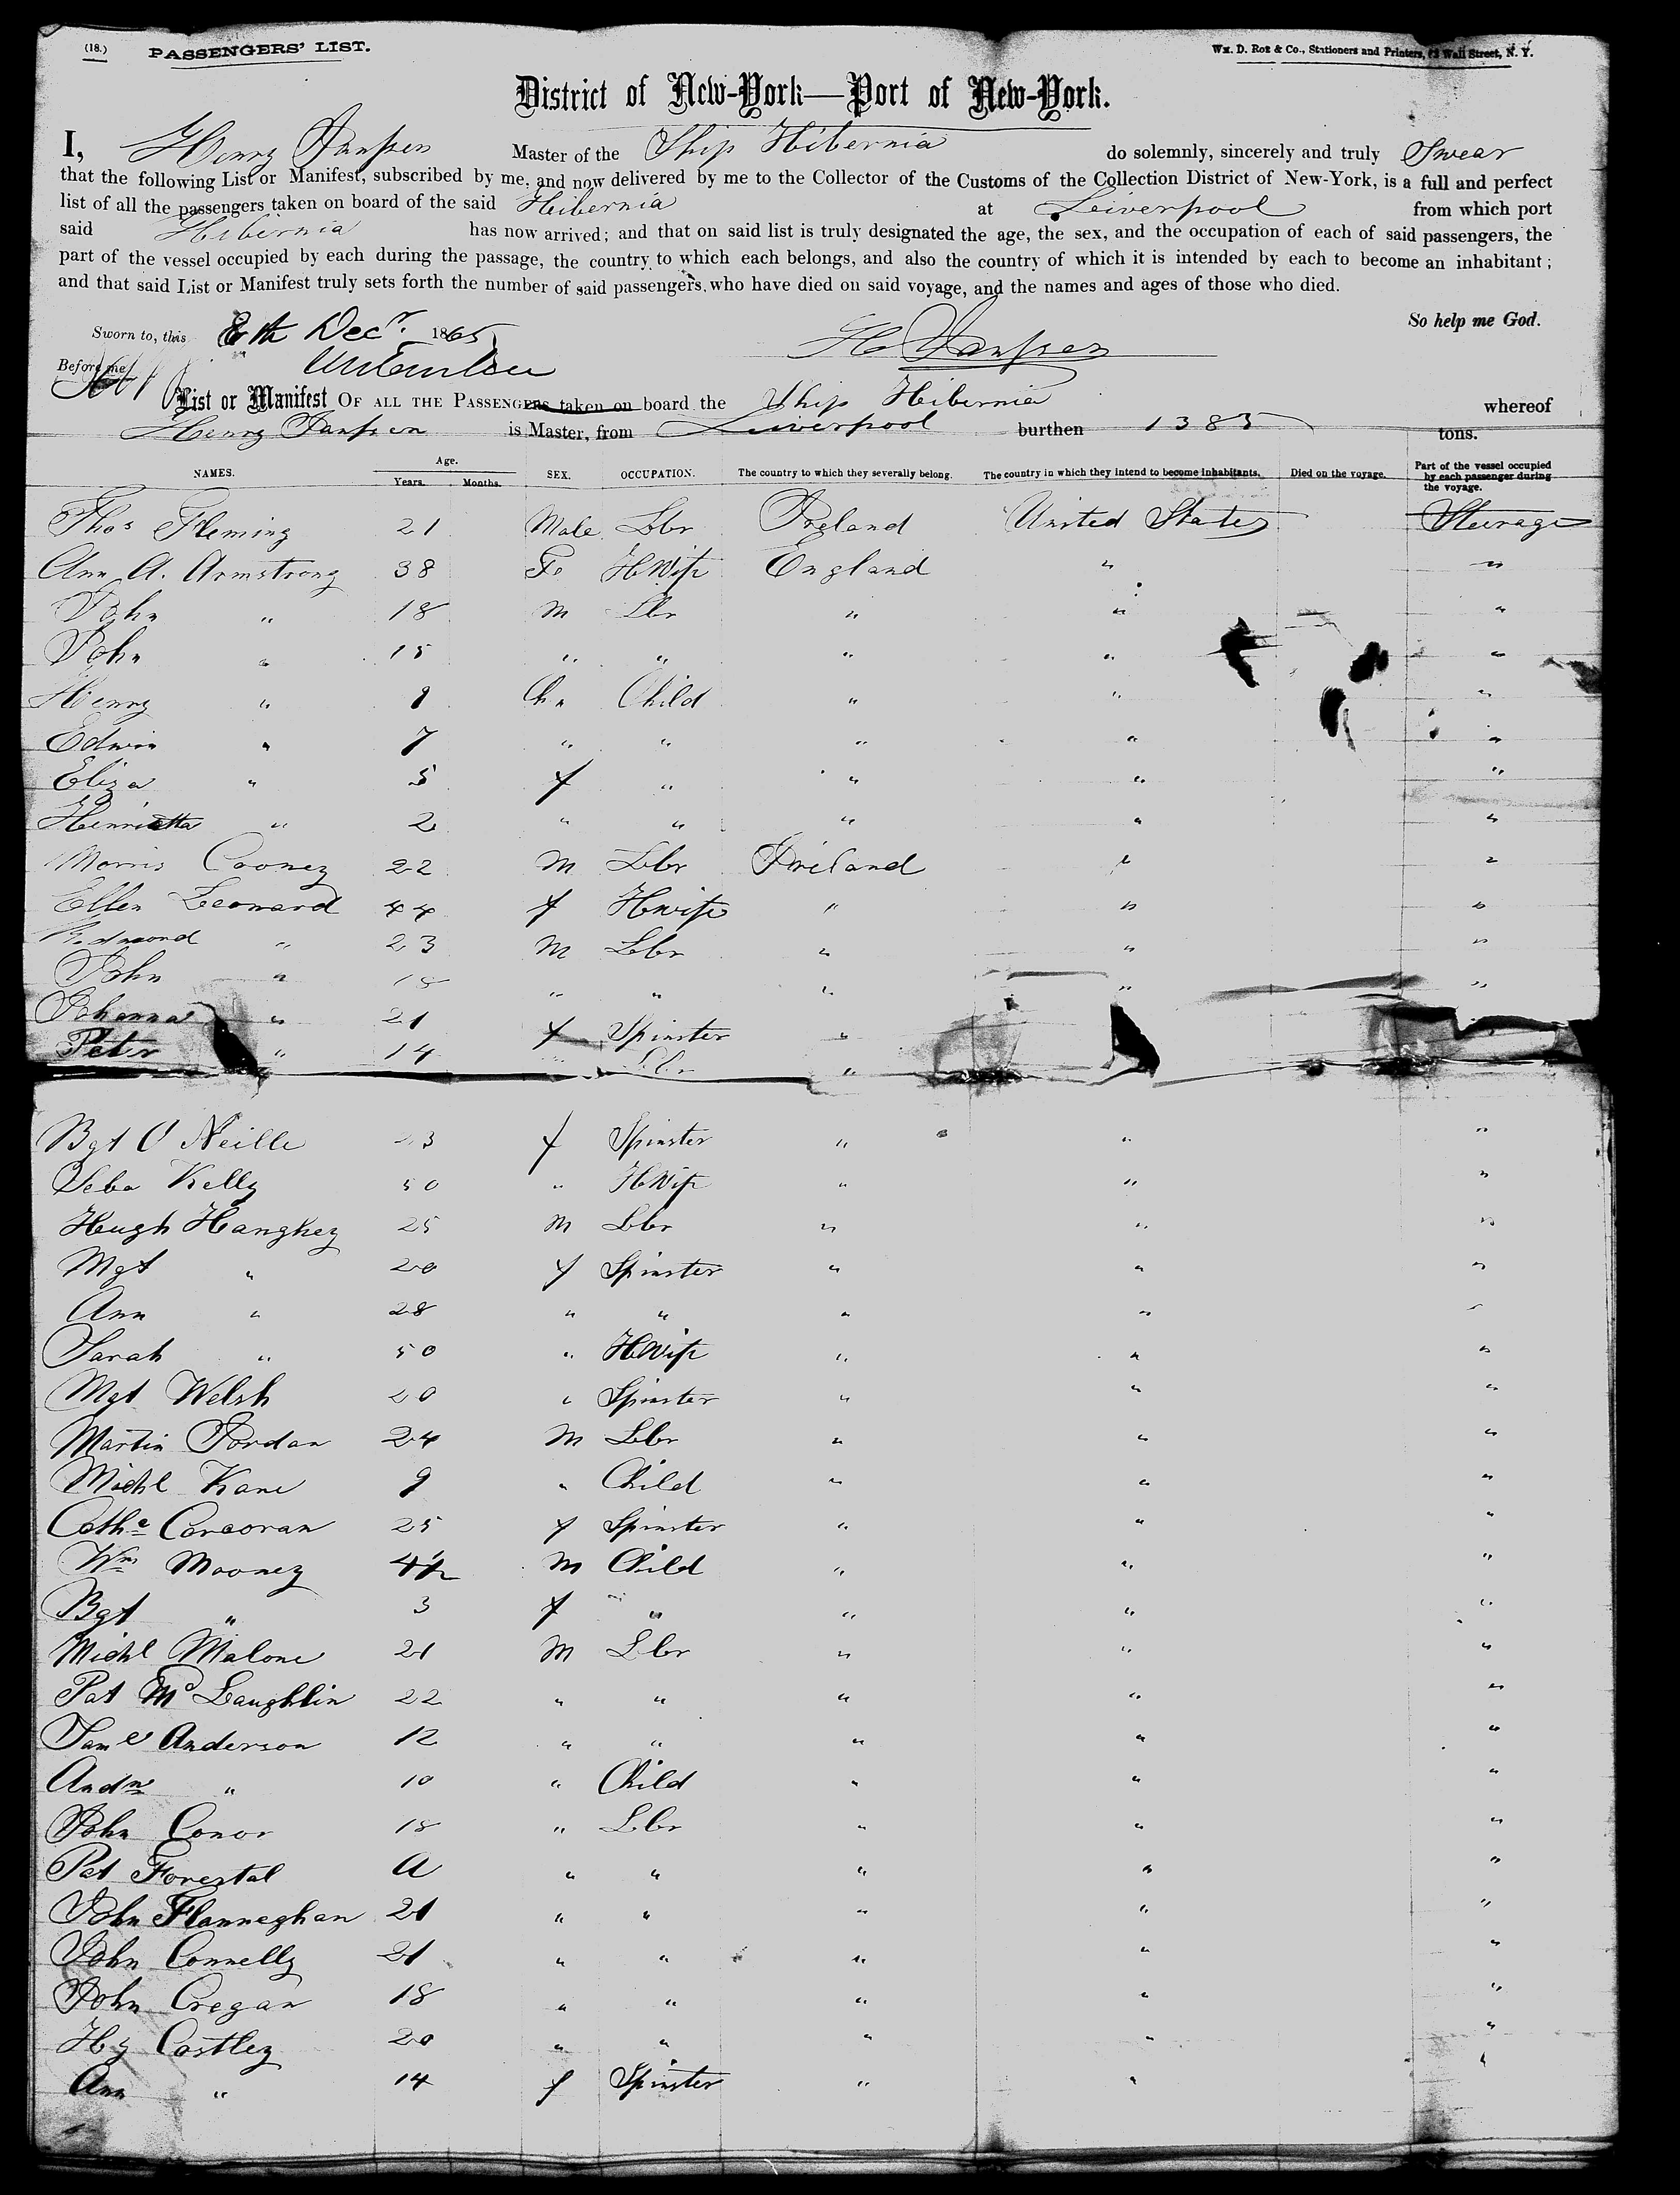 (18.) PASSENGERS' LIST. Wm. D. Roe & Co., Stationers and Printers, Wall Street, N. Y.
District of New-York—Port of New-York.
I, Henry Janssen Master of the Ship Hibernia do solemnly, sincerely and truly Swear
that the following List or Manifest, subscribed by me, and now delivered by me to the Collector of the Customs of the Collection District of New-York, is a full and perfect
list of all the passengers taken on board of the said Hibernia at Leiverpool from which port
said Hibernia has now arrived; and that on said list is truly designated the age, the sex, and the occupation of each of said passengers, the
part of the vessel occupied by each during the passage, the country to which each belongs, and also the country of which it is intended by each to become an inhabitant;
and that said List or Manifest truly sets forth the number of said passengers, who have died on said voyage, and the names and ages of those who died.
So help me God.
Sworn to, this 8th Decr. 1865
H Janssen
Before me
List or Manifest OF ALL THE PASSENGERS taken on board the Ship Hibernia whereof
Henry Janssen is Master, from Liverpool burthen 1385 tons.
NAMES. Age. Years. Months. SEX. OCCUPATION. The country to which they severally belong. The country in which they intend to become inhabitants. Died on the voyage. Part of the vessel occupied by each passenger during the voyage.
Thos Fleming 21 Male Lbr Ireland United States Steerage
Ann A. Armstrong 38 Fe HWife England " "
John " 18 M Lbr " " "
John " 15 " " " " "
Henry " 9 Ch " Child " " "
Edwin " 7 " " " " "
Eliza " 5 f " " " "
Henrietta " 2 " " " " "
Morris Cooney 22 M Lbr Ireland " "
Ellen Leonard 44 f Hwife " " "
Redmond " 23 M Lbr " " "
John " 18 " " " " "
Johanna " 21 f Spinster "
Peter " 14 Lbr "
Bgt O'Neille 23 f Spinster " " "
Seba Kelly 50 " HWife " " "
Hugh Hanghey 25 M Lbr " " "
Mgt " 20 f Spinster " " "
Ann " 28 " " " " "
Sarah " 50 " HWife " " "
Mgt Welsh 20 " Spinster " " "
Martin Jordan 24 M Lbr " " "
Michl Kane 9 " Child " " "
Cathe Corcoran 25 f Spinster " " "
Wm Mooney 4½ M Child " " "
Bgt " 3 f " " " "
Michl Malone 21 M Lbr " " "
Pat McLaughlin 22 " " " " "
Saml Anderson 12 " " " " "
Andw " 10 " Child " " "
John Conor 18 " Lbr " " "
Pat Forestal a " " " " "
John Flanneghan 21 " " " " "
John Connelly 21 " " " " "
John Cregan 18 " " " " "
Hy Costley 20 " " " " "
Ann " 14 f Spinster " " "